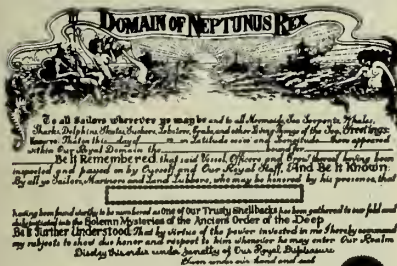 DOMAIN OF NEPTUNUS REX
To all Sailors wherever ye may be and to all Mermaids, Sea Serpents, Whales,
Sharks, Dolphins, Skates, Suckers, Lobsters, Crabs, and other Living Things of the Sea, Greetings:
Know ye: That on this day of 19 in Latitude 00000 and Longitude there appeared
within Our Royal Domain the bound for
Be It Remembered that said Vessel, Officers and Crew thereof having been
inspected and passed on by Ourself and Our Royal Staff, And Be It Known
By all ye Sailors, Mariners and Land Lubbers, who may be honored by his presence, that
having been found worthy to be numbered as One of our Trusty Shellbacks has been gathered to our fold and
initiated into the Solemn Mysteries of the Ancient Order of the Deep
Be It Further Understood That by virtue of the power invested in me I hereby command
my subjects to show due honor and respect to him whenever he may enter Our Realm
Disobey this order under penalty of Our Royal Displeasure
Given under our hand and seal